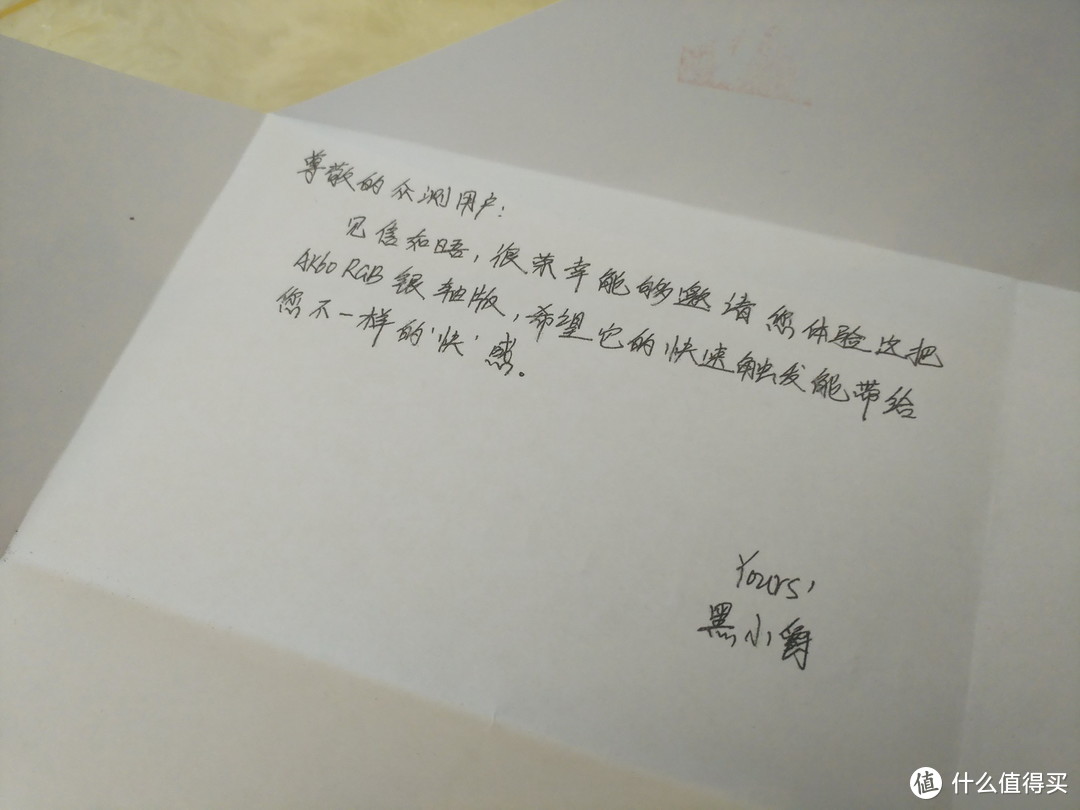 尊敬的众测用户：
见信如晤，很荣幸能够邀请您体验这把
AK60 RGB 银轴版，希望它的快速触发能带给
您不一样的‘快’感。
Yours,
黑小爵
值 什么值得买